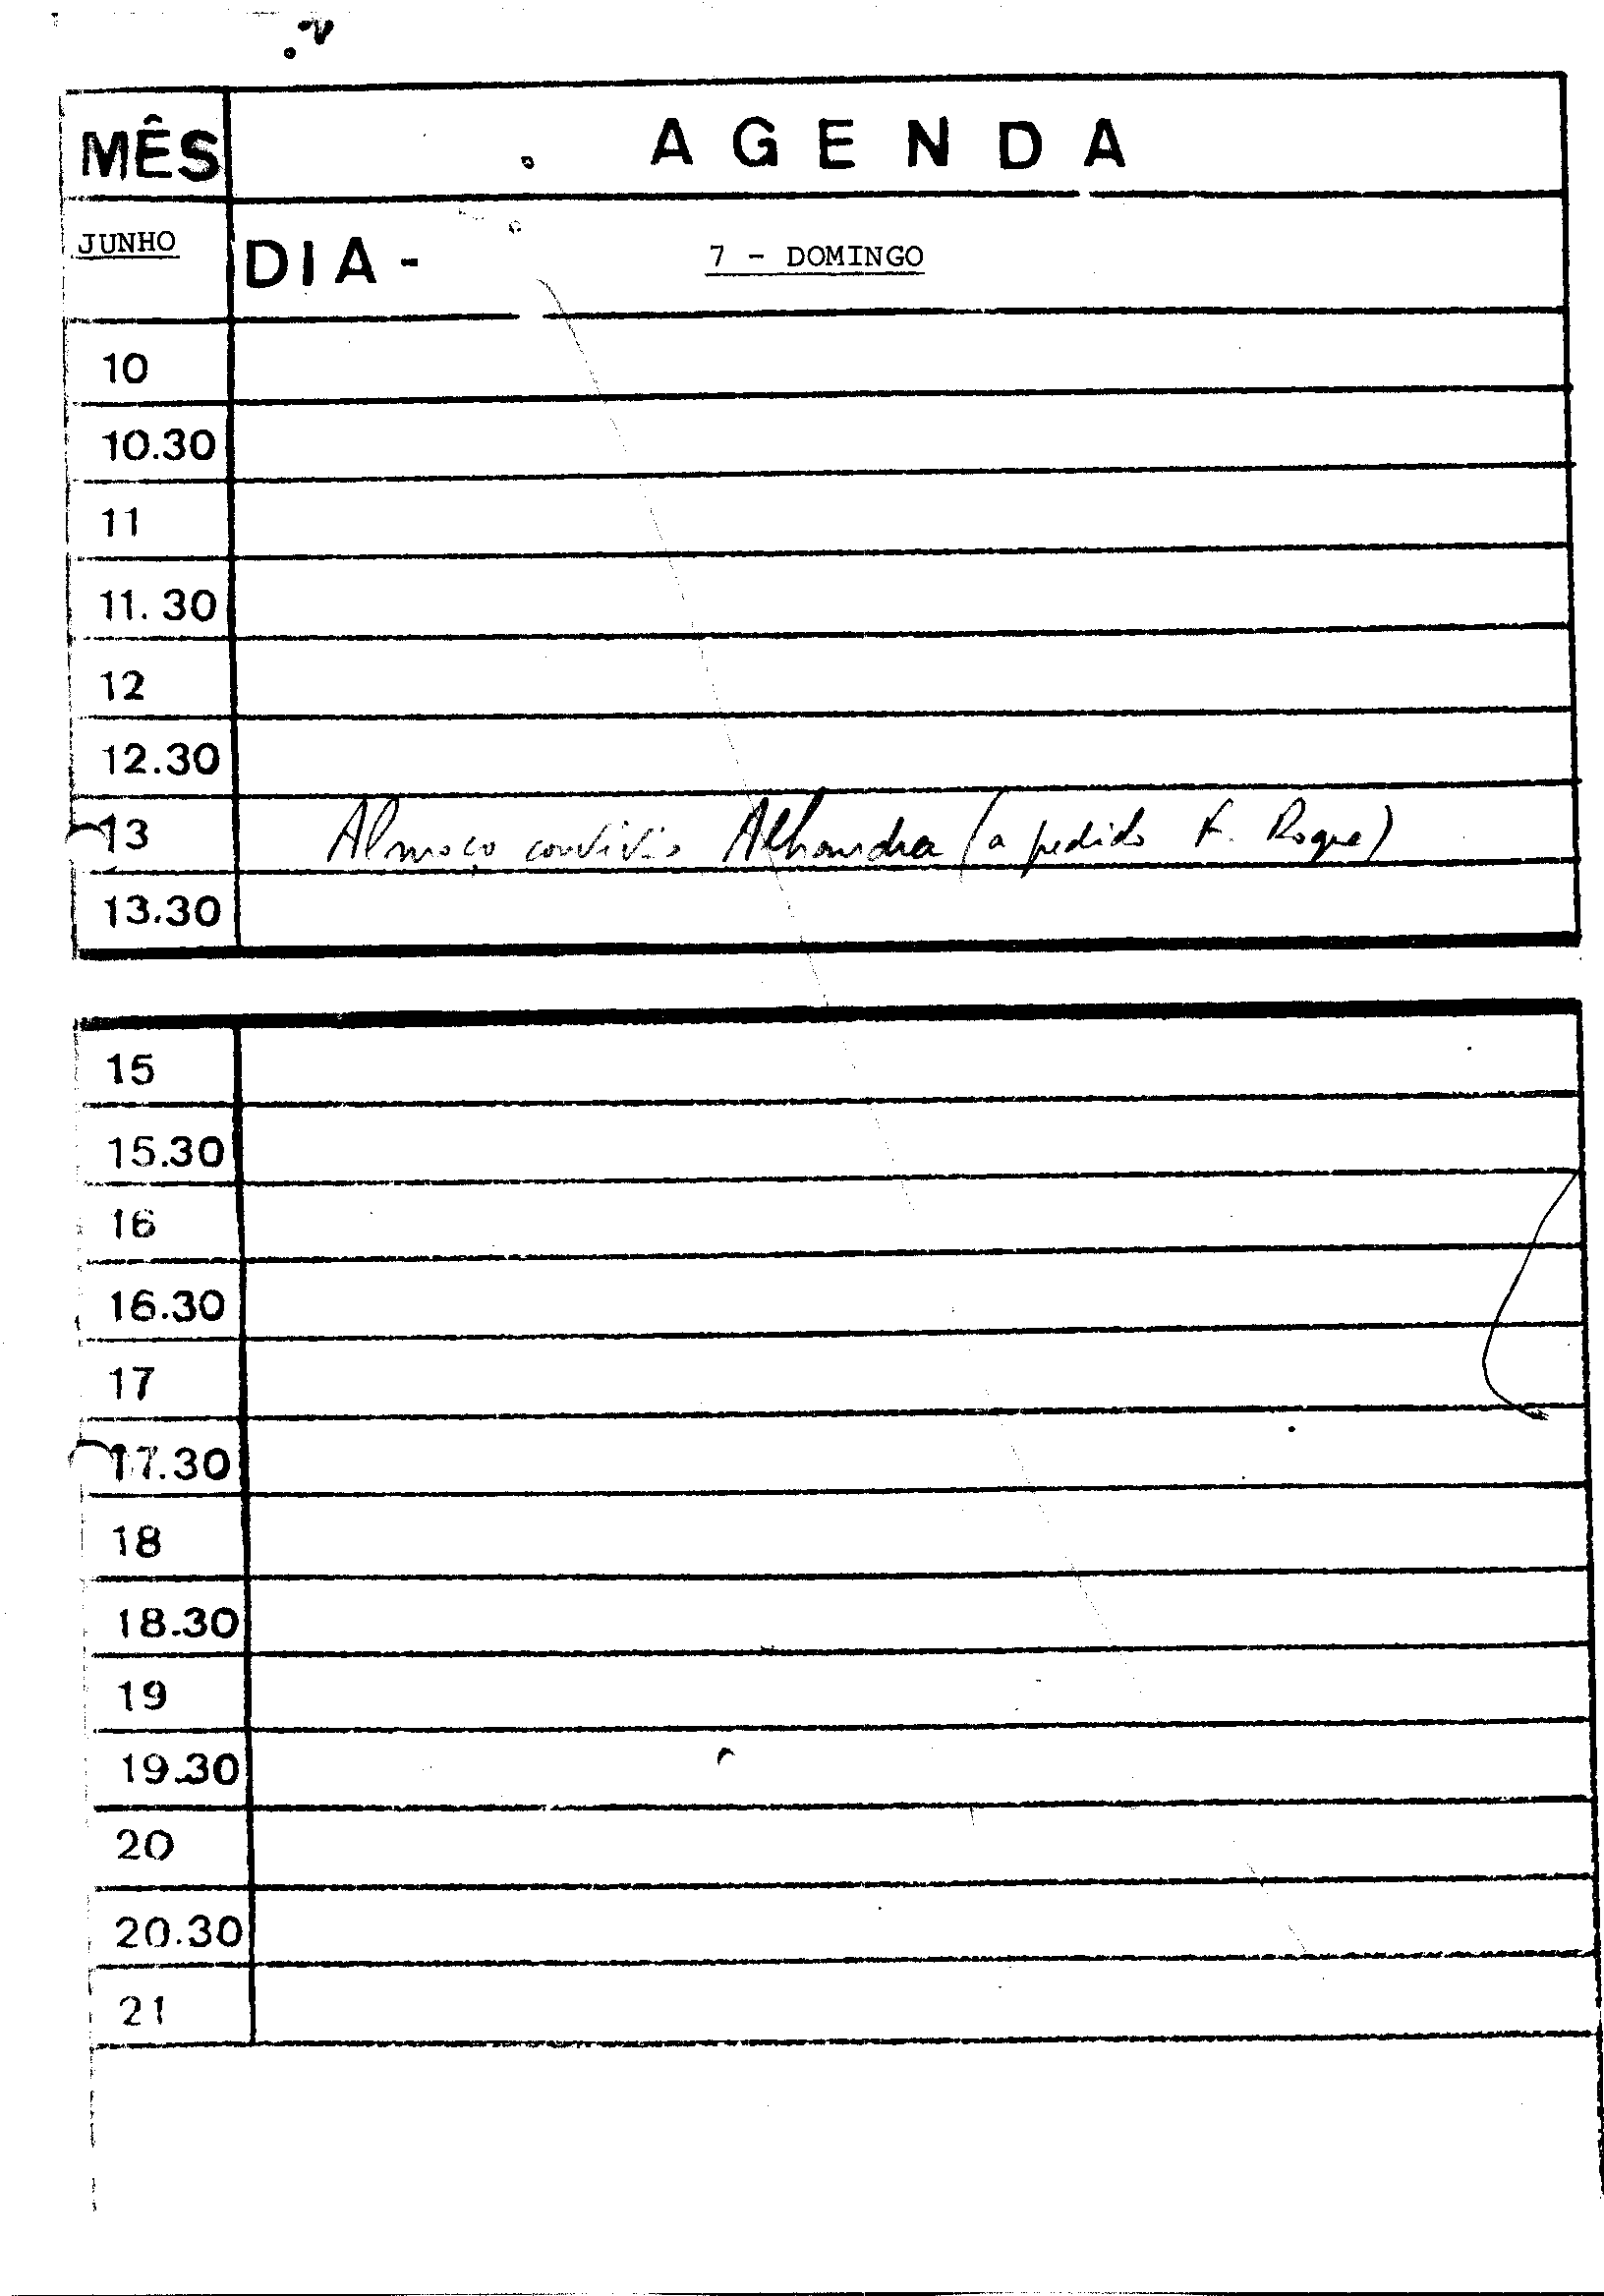 MÊS
A G E N D A
JUNHO
DIA -
7 - DOMINGO
10
10.30
11
11.30
12
12.30
13 Almoço convívio Alhandra (a pedido F. Roque)
13.30
15
15.30
16
16.30
17
17.30
18
18.30
19
19.30
20
20.30
21